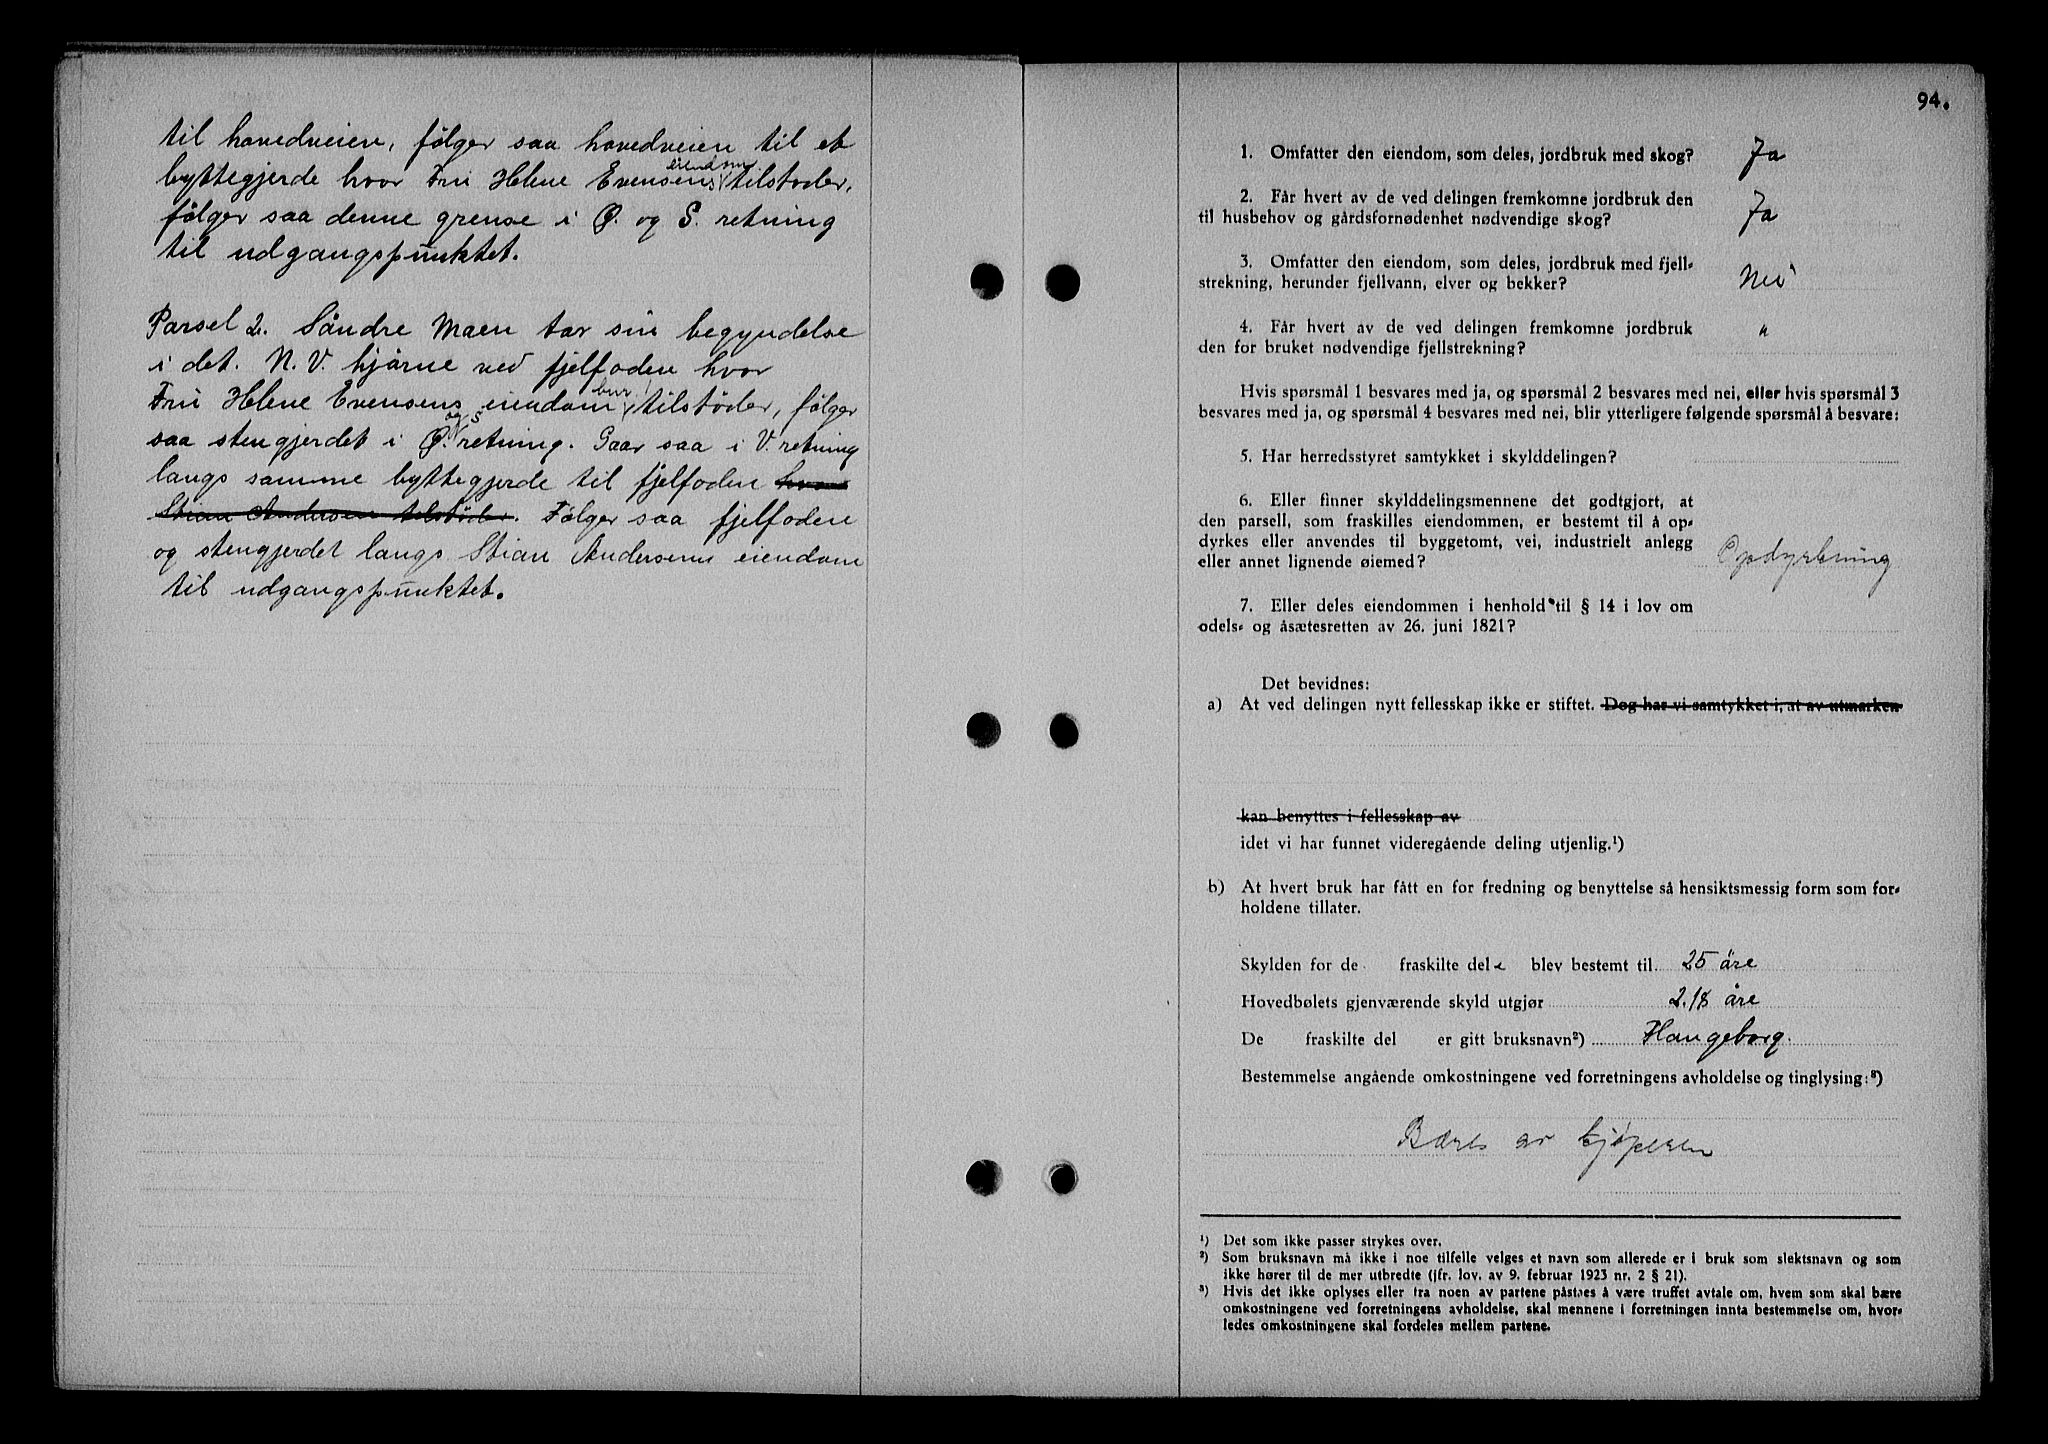 til hovedveien, følger saa hovedveien til et
byttegjerde hvor Fru Helene Evensens eiendom tilstøder,
følger saa denne grense i Ø. og S. retning
til udgangspunktet.
Parsel 2. Søndre Maen tar sin begyndelse
i det. N.V. hjørne ved fjelfoden hvor
Fru Helene Evensens eiendom tilstøder, følger
saa stengjerdet i Ø. og S retning. Gaar saa i V. retning
langs samme byttegjerde til fjelfoden hvor
Stian Andersen tilstøder. Følger saa fjelfoden
og stengjerdet langs Stian Andersens eiendom
til udgangspunktet.
94.
1. Omfatter den eiendom, som deles, jordbruk med skog? Ja
2. Får hvert av de ved delingen fremkomne jordbruk den
til husbehov og gårdsfornødenhet nødvendige skog? Ja
3. Omfatter den eiendom, som deles, jordbruk med fjell-
strekning, herunder fjellvann, elver og bekker? Nei
4. Får hvert av de ved delingen fremkomne jordbruk "
den for bruket nødvendige fjellstrekning?
Hvis spørsmål 1 besvares med ja, og spørsmål 2 besvares med nei, eller hvis spørsmål 3
besvares med ja, og spørsmål 4 besvares med nei, blir ytterligere følgende spørsmål å besvare:
5. Har herredsstyret samtykket i skylddelingen?
6. Eller finner skylddelingsmennene det godtgjort, at
den parsell, som fraskilles eiendommen, er bestemt til å op-
dyrkes eller anvendes til byggetomt, vei, industrielt anlegg
eller annet lignende øiemed? Opdyrkning
7. Eller deles eiendommen i henhold til § 14 i lov om
odels- og åsætesretten av 26. juni 1821?
Det bevidnes:
a) At ved delingen nytt fellesskap ikke er stiftet. Dog har vi samtykket i, at av utmarken
kan benyttes i fellesskap av
idet vi har funnet videregående deling utjenlig.¹)
b) At hvert bruk har fått en for fredning og benyttelse så hensiktsmessig form som for-
holdene tillater.
Skylden for de fraskilte dele blev bestemt til 25 øre
Hovedbølets gjenværende skyld utgjør 2.18 øre
De fraskilte del er gitt bruksnavn²) Haugeborg.
Bestemmelse angående omkostningene ved forretningens avholdelse og tinglysing:³)
Bæres av kjøperen
¹) Det som ikke passer strykes over.
²) Som bruksnavn må ikke i noe tilfelle velges et navn som allerede er i bruk som slektsnavn og som
ikke hører til de mer utbredte (jfr. lov. av 9. februar 1923 nr. 2 § 21).
³) Hvis det ikke oplyses eller fra noen av partene påstaes å være truffet avtale om, hvem som skal bære
omkostningene ved forretningens avholdelse, skal mennene i forretningen innta bestemmelse om, hvor-
ledes omkostningene skal fordeles mellem partene.